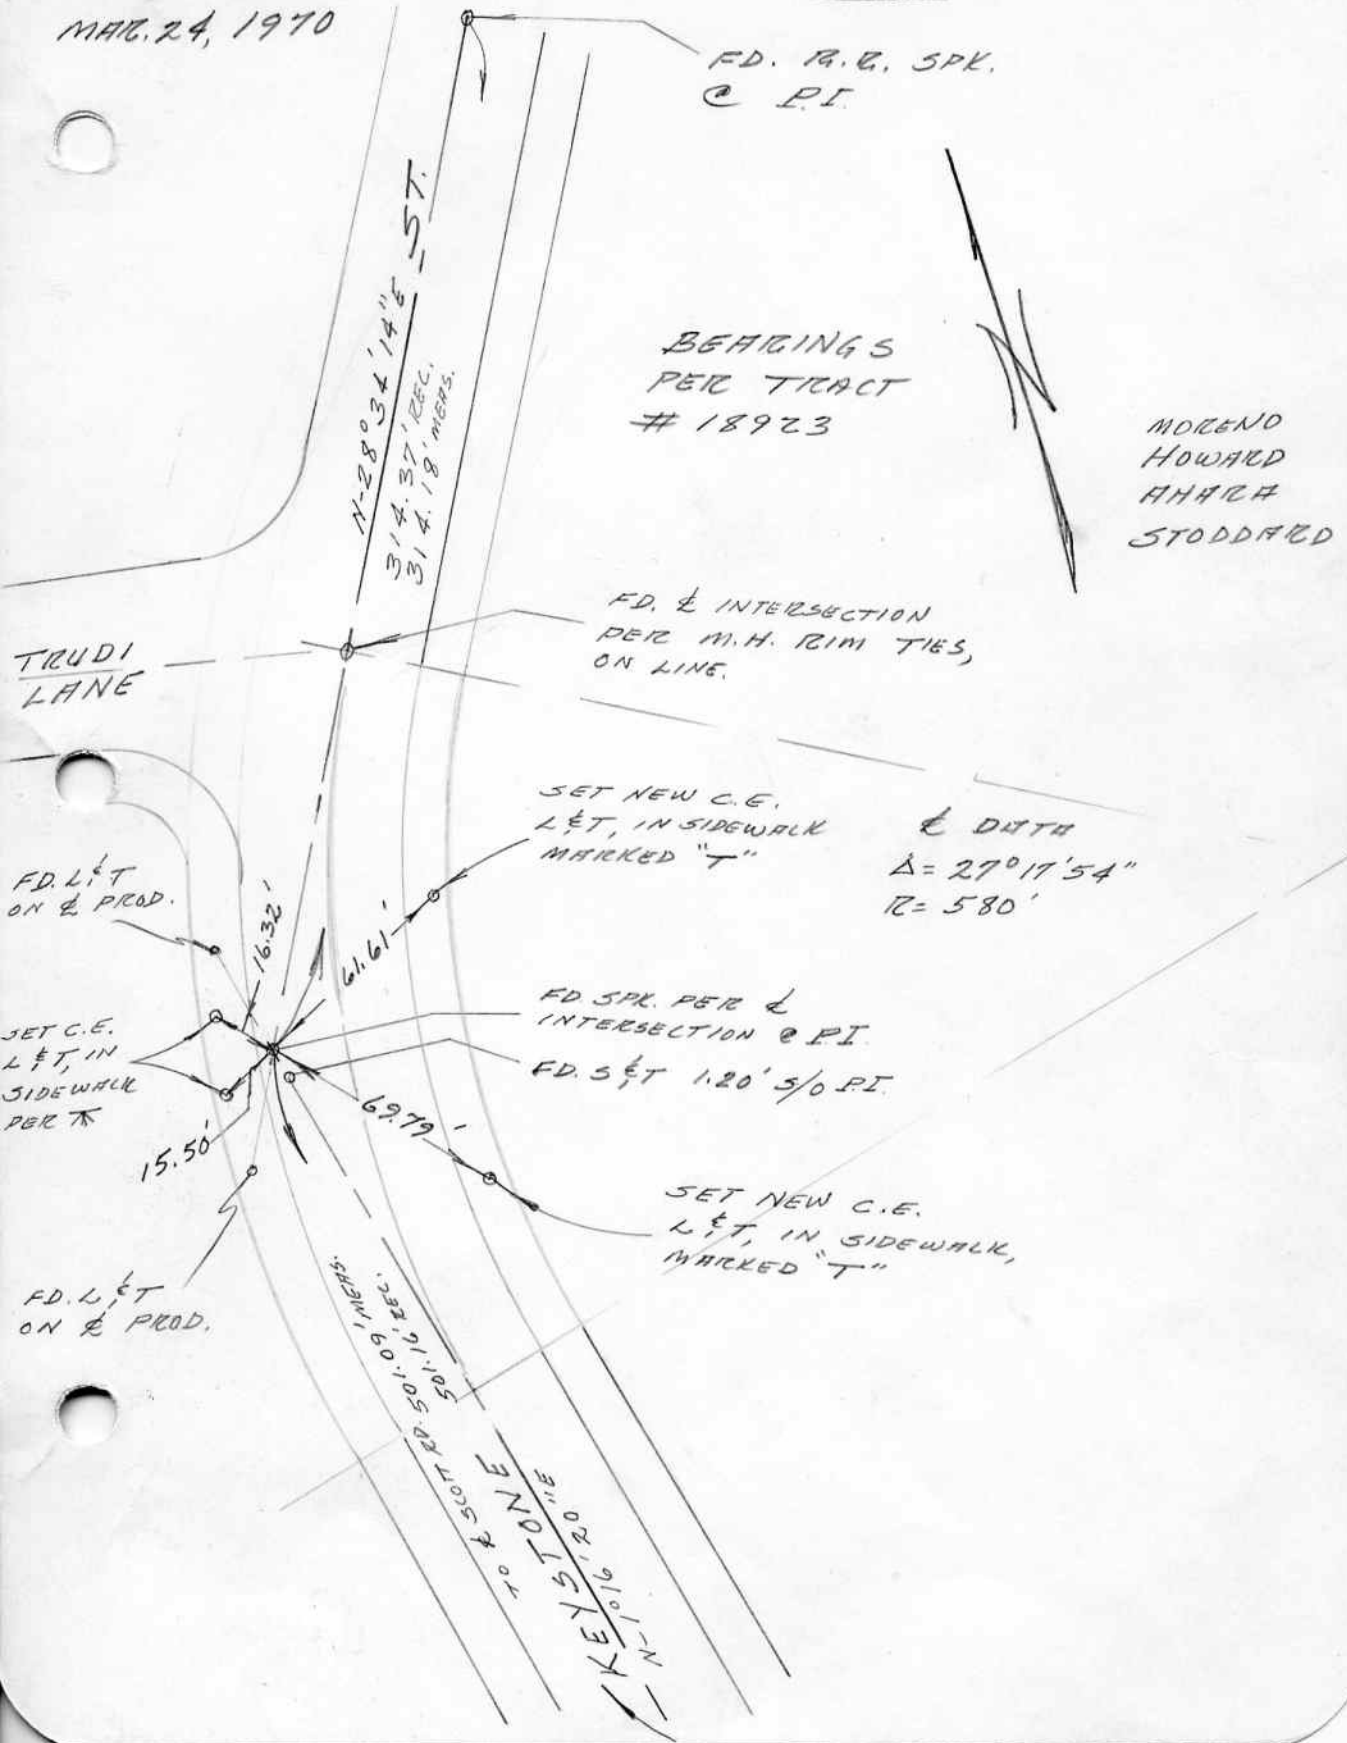 MAR. 24, 1970
FD. R.R. SPK.
@ P.I.
N-28°34'14"E
ST.
314.37' REC.
314.18' MEAS.
BEARINGS
PER TRACT
# 18923
N
MORENO
HOWARD
AHARA
STODDARD
FD. ℄ INTERSECTION
PER M.H. RIM TIES,
ON LINE.
TRUDI
LANE
SET NEW C.E.
L&T, IN SIDEWALK
MARKED "T"
℄ DATA
Δ= 27°17'54"
R= 580'
FD. L&T
ON ℄ PROD.
16.32'
61.61'
FD. SPK. PER ℄
INTERSECTION @ P.I.
SET C.E.
L&T, IN
SIDEWALK
PER
FD. S&T 1.20' S/O P.I.
69.79'
15.50'
SET NEW C.E.
L&T, IN SIDEWALK,
MARKED "T"
FD. L&T
ON ℄ PROD.
501.16' REC.
TO ℄ SCOTT RD. 501.09' MEAS.
KEYSTONE
N-1°16'20"E